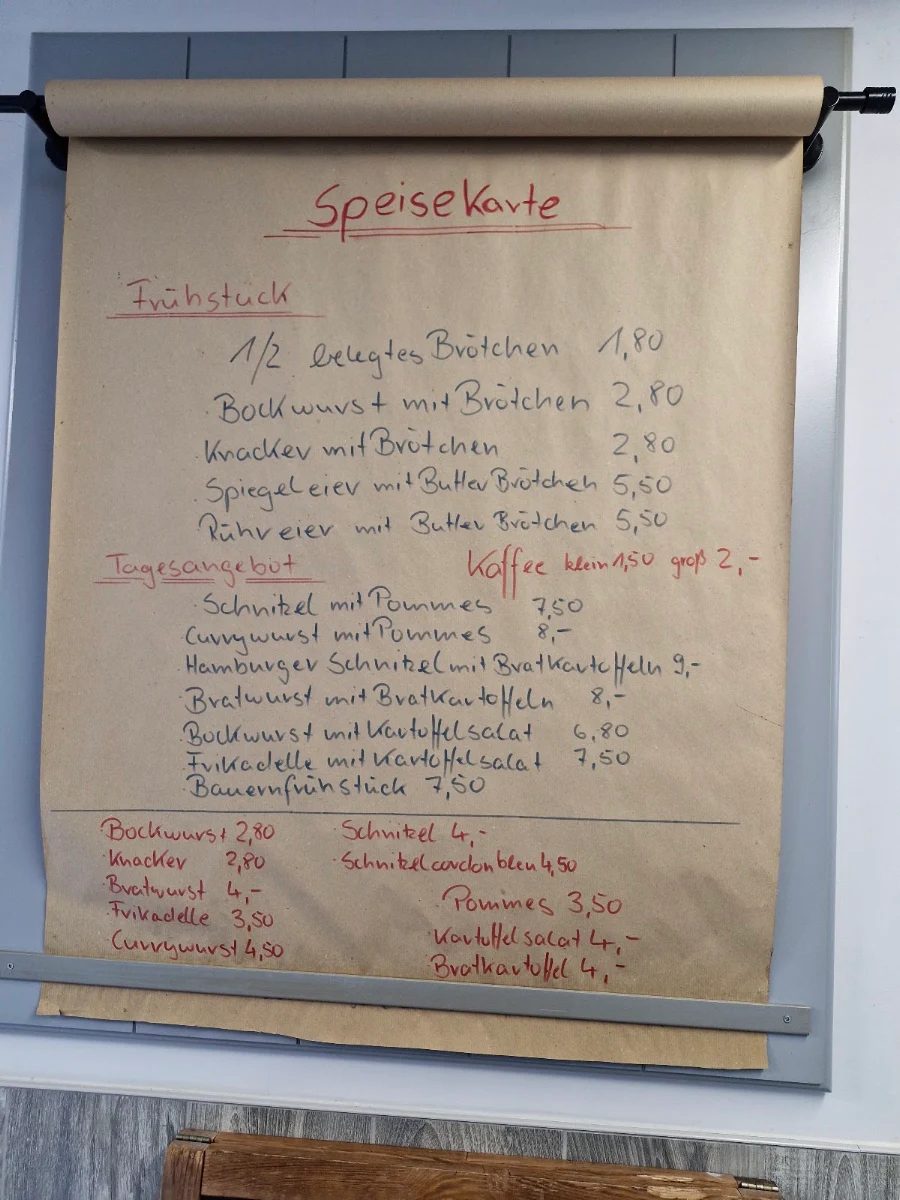 Speisekarte
Frühstück
1/2 belegtes Brötchen 1,80
Bockwurst mit Brötchen 2,80
Knacker mit Brötchen 2,80
Spiegeleier mit Butter Brötchen 5,50
Rühreier mit Butter Brötchen 5,50
Kaffee klein 1,50 groß 2,-
Tagesangebot
Schnitzel mit Pommes 7,50
Currywurst mit Pommes 8,-
Hamburger Schnitzel mit Bratkartoffeln 9,-
Bratwurst mit Bratkartoffeln 8,-
Bockwurst mit Kartoffelsalat 6,80
Frikadelle mit Kartoffelsalat 7,50
Bauernfrühstück 7,50
Bockwurst 2,80
Knacker 2,80
Bratwurst 4,-
Frikadelle 3,50
Currywurst 4,50
Schnitzel 4,-
Schnitzel cordon bleu 4,50
Pommes 3,50
Kartoffelsalat 4,-
Bratkartoffel 4,-